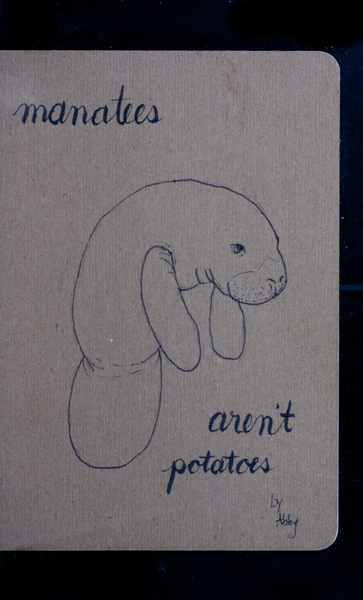 manatees
aren't
potatoes
by
Abby